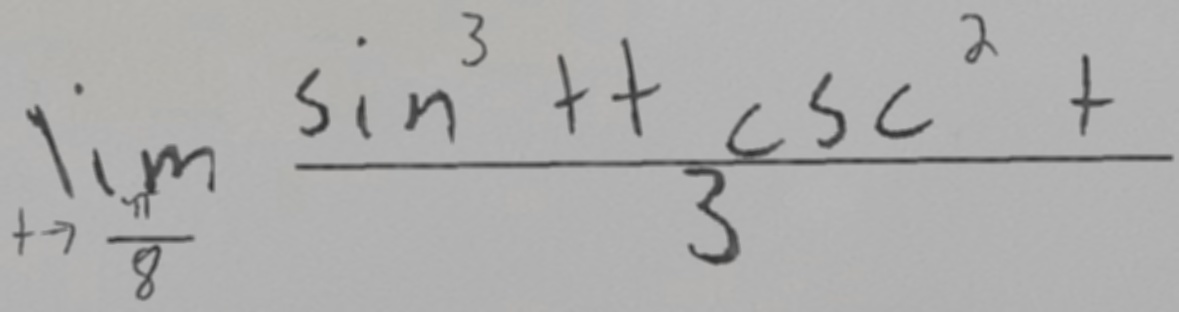 lim t→π/8 (sin³ t + csc² t)/3